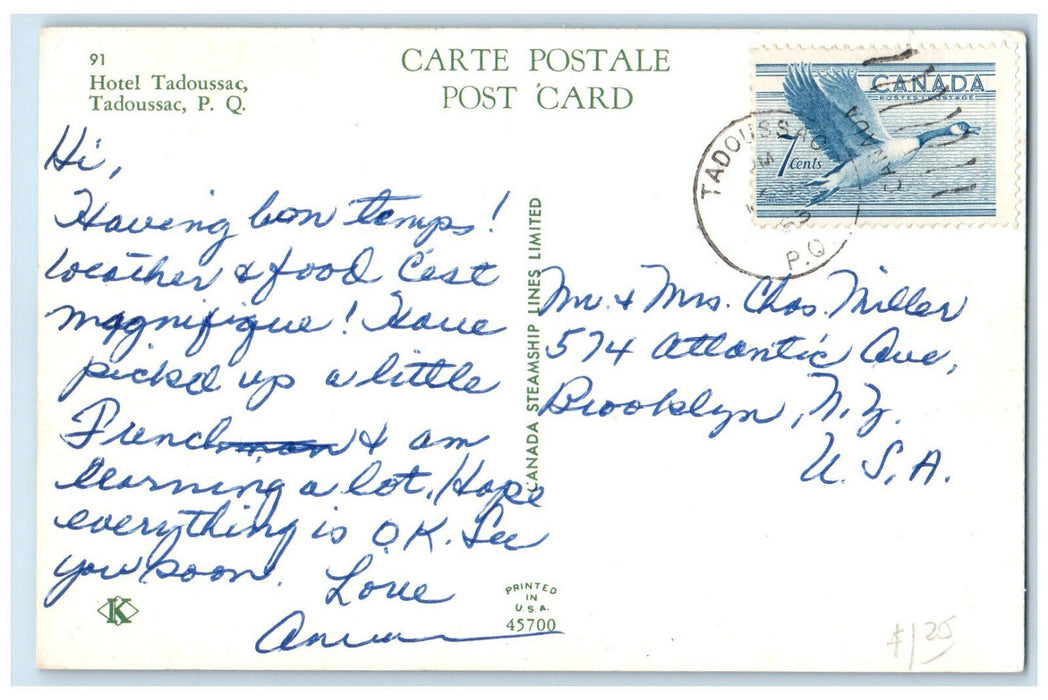 91
Hotel Tadoussac,
Tadoussac, P. Q.
CARTE POSTALE
POST CARD
CANADA
POSTES-POSTAGE
7 cents
TADOUSSAC
P.Q.
CANADA
Hi,
Having bon temps!
Weather & food C'est
magnifique! Have
picked up a little
Frenchman & am
learning a lot. Hope
everything is O.K. See
you soon.
Love
CANADA STEAMSHIP LINES LIMITED
Mr. & Mrs. Chas. Miller
574 Atlantic Ave,
Brooklyn, N.Y.
U.S.A.
K
PRINTED
IN
U.S.A.
45700
$1.25